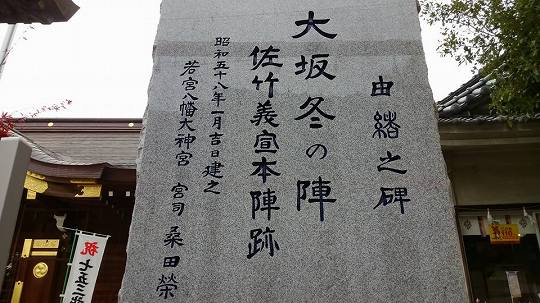 由緒之碑
大坂冬の陣
佐竹義宣本陣跡
昭和五十八年一月吉日建之
若宮八幡大神宮 宮司 桑田榮
祝 七五三